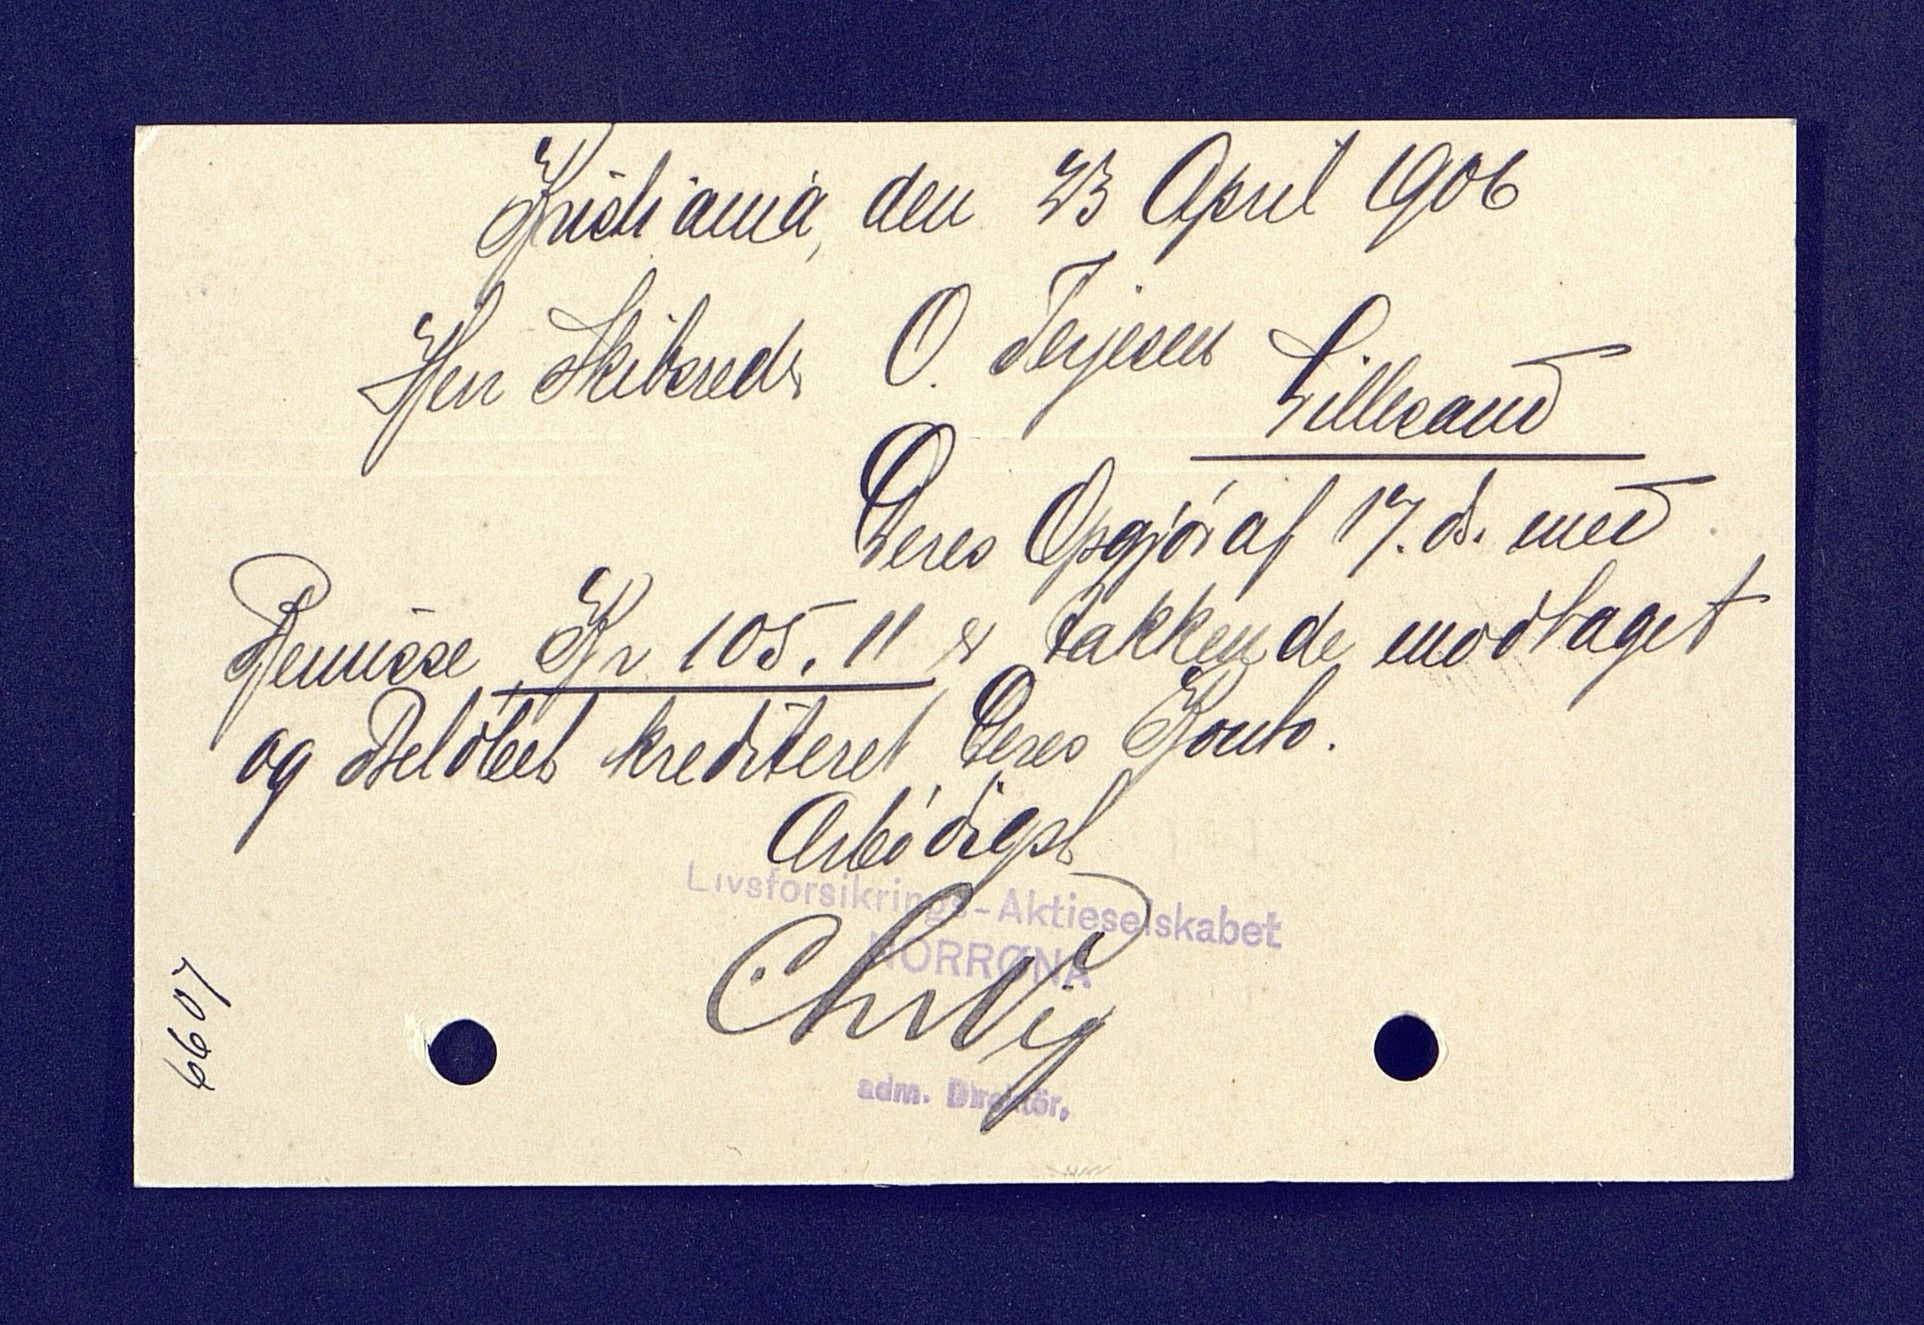 Kristiania, den 23 April 1906
Herr Skibsred. O. Terjesen
Lillesand
Deres Opgjör af 17. ds. med
Remisse Kr 105.11 er takkende modtaget
og Beløbet krediteret Deres Konto.
Ærbödigst
Livsforsikrings-Aktieselskabet
NORRØNA
Chr Vig
adm. Direktör.
6607